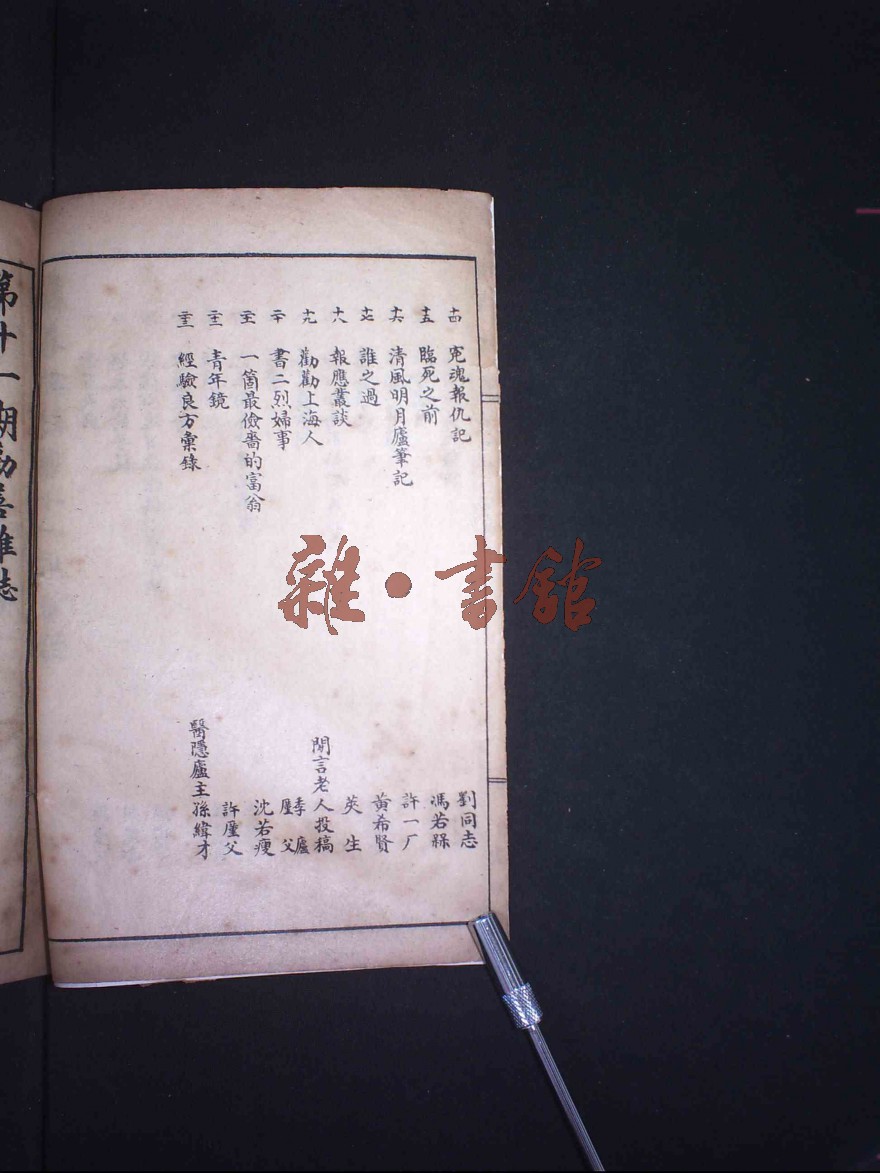 十四 寃魂報仇記 劉同志
十五 臨死之前 馮若槑
十六 清風明月廬筆記 許一厂
十七 誰之過 黄希賢
十八 報應叢談 英生
十九 勸勸上海人 閒言老人投稿
二十 書二烈婦事 季廬 塵父
二十一 一箇最儉嗇的富翁 沈若瘦
二十二 青年鏡 許塵父
二十三 經驗良方彙錄 醫隱廬主孫緯才
第十一期勸善雜志
雜·書舘